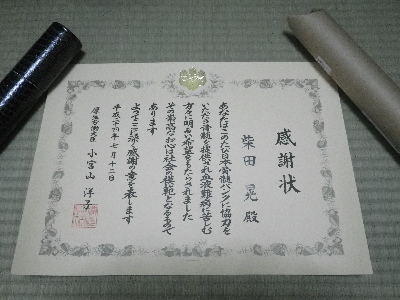 感謝状
柴田 晃 殿
あなたはこのたび日本骨髄バンクに協力を
いただき骨髄を提供され血液難病に苦しむ
方々に明るい希望をもたらされました
その崇高なお心は社会の模範となるもので
あります
よってここに深く感謝の意を表します
平成二十四年七月十二日
厚生労働大臣 小宮山 洋子